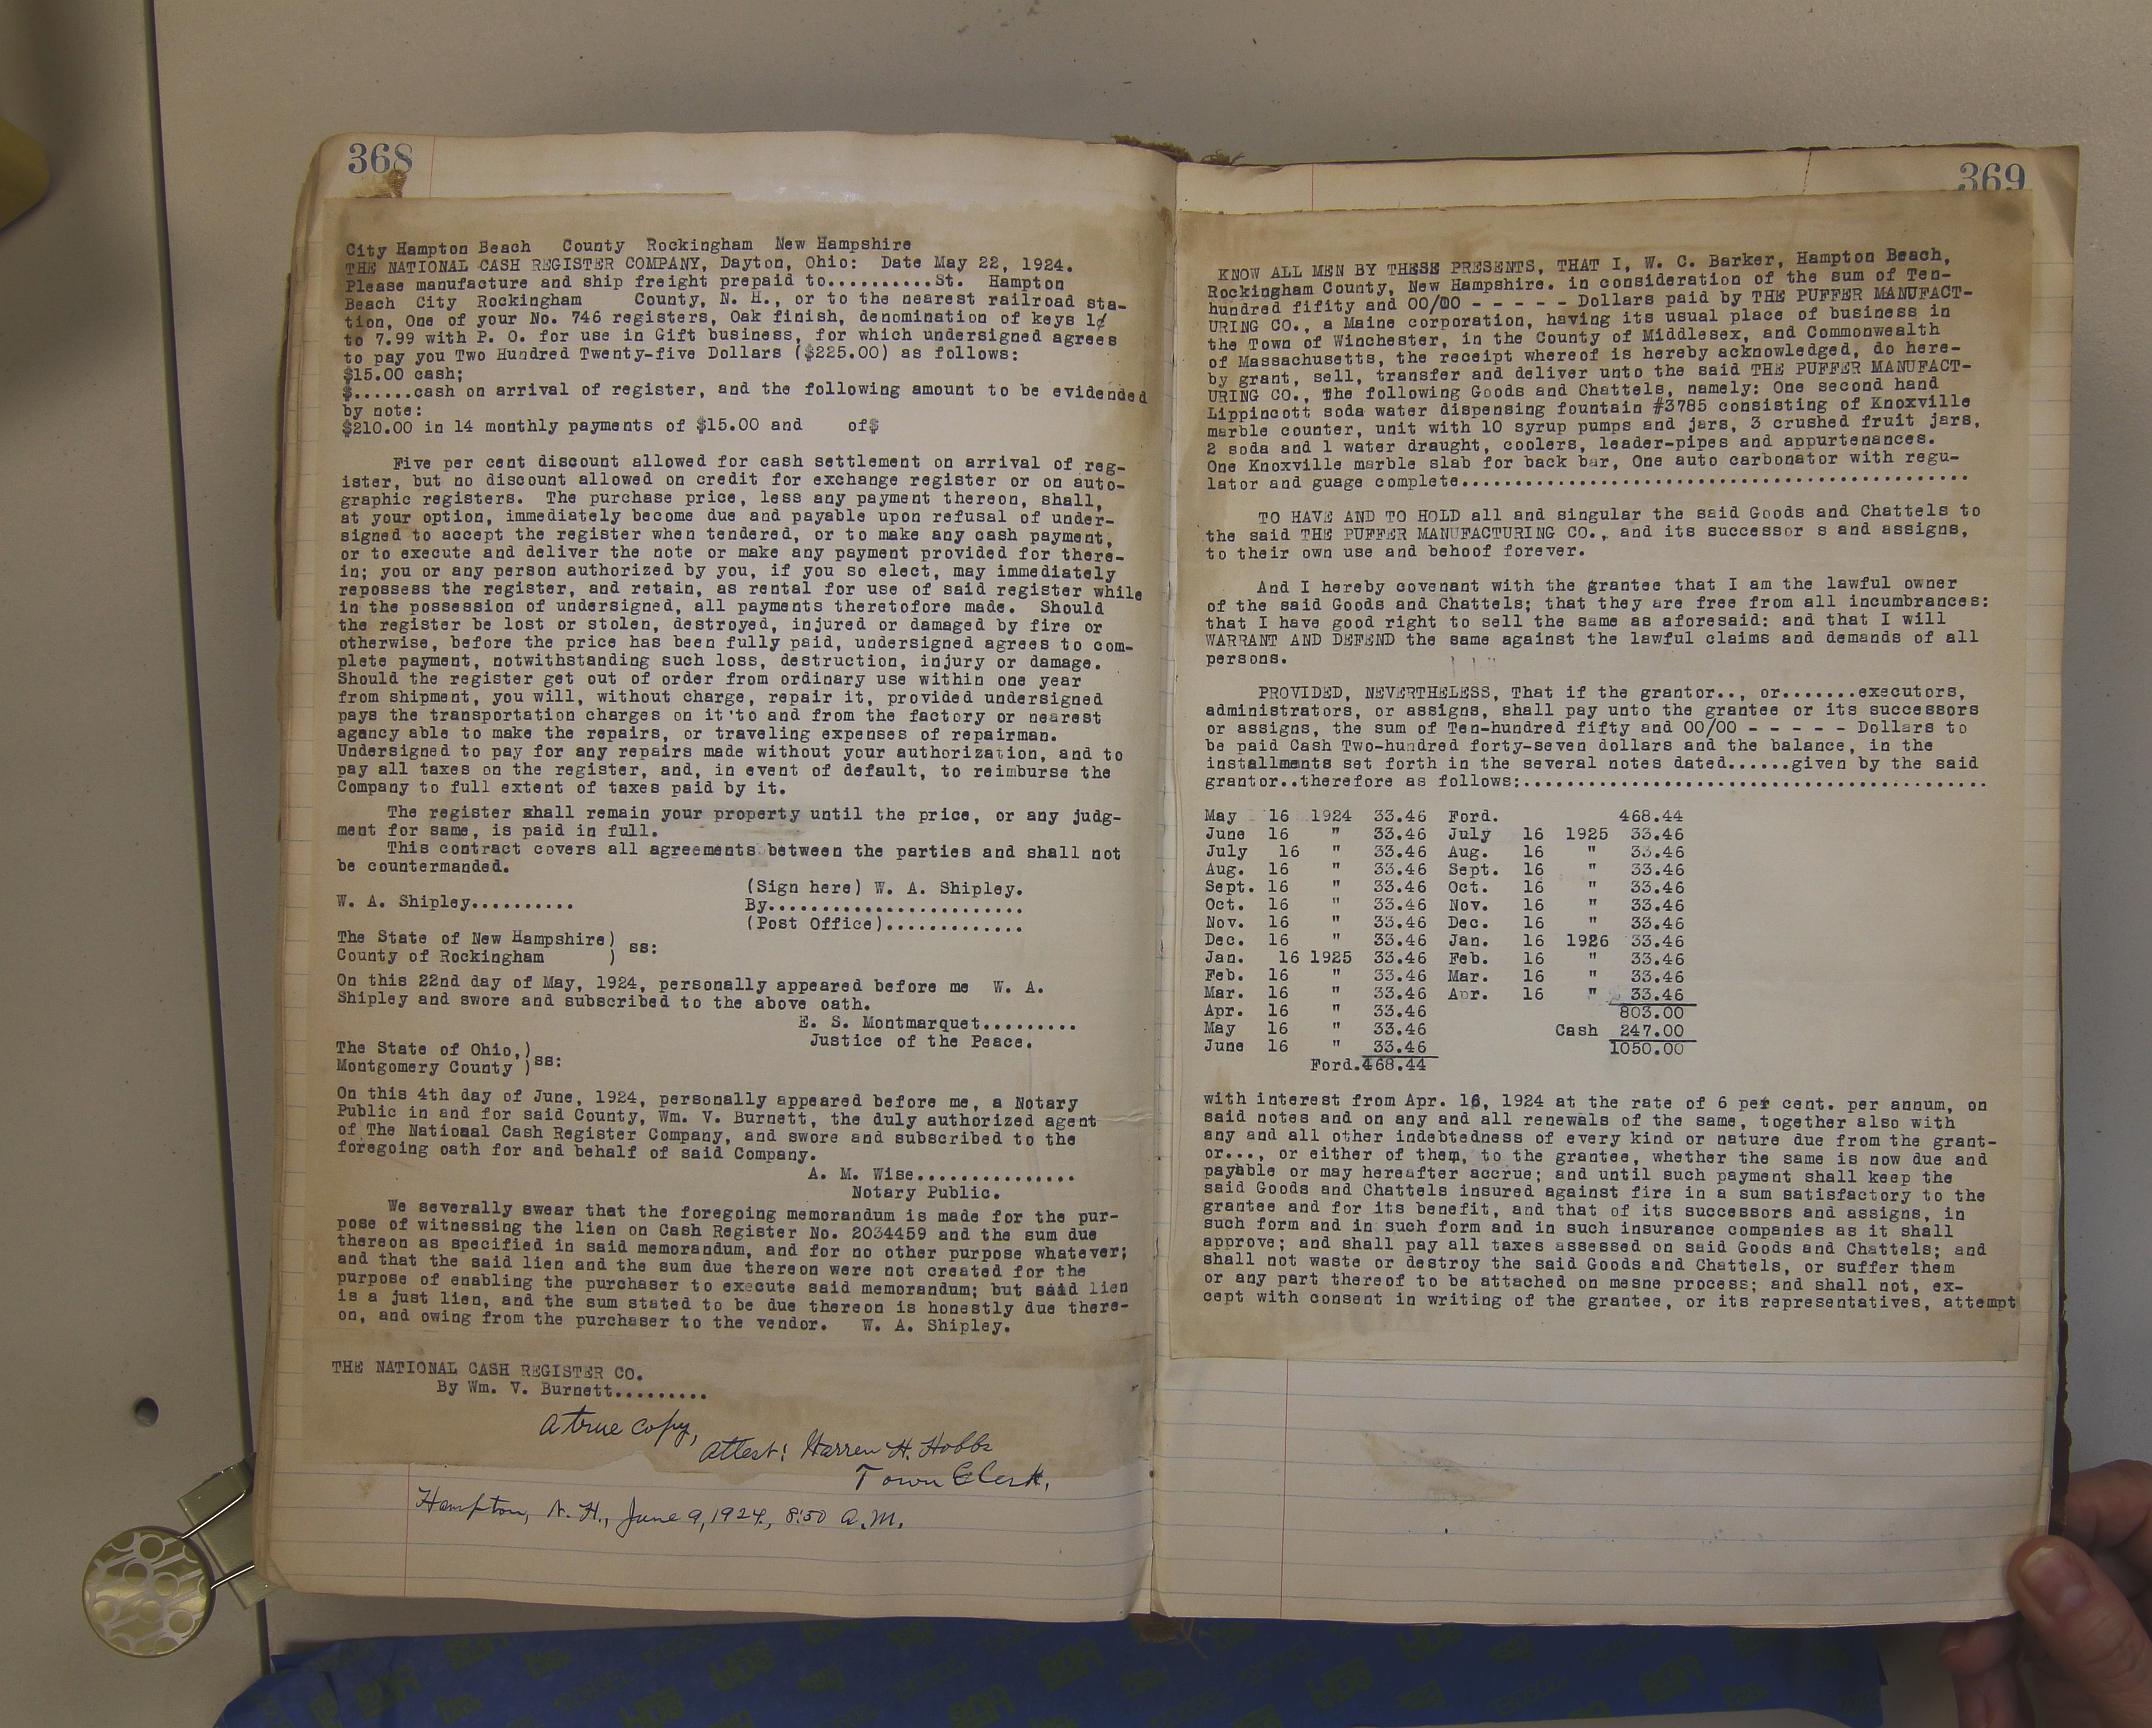 368
City Hampton Beach County Rockingham New Hampshire
THE NATIONAL CASH REGISTER COMPANY, Dayton, Ohio: Date May 22, 1924.
Please manufacture and ship freight prepaid to..........St. Hampton
Beach City Rockingham County, N. H., or to the nearest railroad sta-
tion, One of your No. 746 registers, Oak finish, denomination of keys 1¢
to 7.99 with P. O. for use in Gift business, for which undersigned agrees
to pay you Two Hundred Twenty-five Dollars ($225.00) as follows:
$15.00 cash;
$......cash on arrival of register, and the following amount to be evidended
by note:
$210.00 in 14 monthly payments of $15.00 and of$
Five per cent discount allowed for cash settlement on arrival of reg-
ister, but no discount allowed on credit for exchange register or on auto-
graphic registers. The purchase price, less any payment thereon, shall,
at your option, immediately become due and payable upon refusal of under-
signed to accept the register when tendered, or to make any cash payment,
or to execute and deliver the note or make any payment provided for there-
in; you or any person authorized by you, if you so elect, may immediately
repossess the register, and retain, as rental for use of said register while
in the possession of undersigned, all payments theretofore made. Should
the register be lost or stolen, destroyed, injured or damaged by fire or
otherwise, before the price has been fully paid, undersigned agrees to com-
plete payment, notwithstanding such loss, destruction, injury or damage.
Should the register get out of order from ordinary use within one year
from shipment, you will, without charge, repair it, provided undersigned
pays the transportation charges on it to and from the factory or nearest
agency able to make the repairs, or traveling expenses of repairman.
Undersigned to pay for any repairs made without your authorization, and to
pay all taxes on the register, and, in event of default, to reimburse the
Company to full extent of taxes paid by it.
The register shall remain your property until the price, or any judg-
ment for same, is paid in full.
This contract covers all agreements between the parties and shall not
be countermanded.
(Sign here) W. A. Shipley.
W. A. Shipley..........
By........................
(Post Office).............
The State of New Hampshire)
County of Rockingham ) ss:
On this 22nd day of May, 1924, personally appeared before me W. A.
Shipley and swore and subscribed to the above oath.
E. S. Montmarquet.........
Justice of the Peace.
The State of Ohio,)
Montgomery County )ss:
On this 4th day of June, 1924, personally appeared before me, a Notary
Public in and for said County, Wm. V. Burnett, the duly authorized agent
of The National Cash Register Company, and swore and subscribed to the
foregoing oath for and behalf of said Company.
A. M. Wise...............
Notary Public.
We severally swear that the foregoing memorandum is made for the pur-
pose of witnessing the lien on Cash Register No. 2034459 and the sum due
thereon as specified in said memorandum, and for no other purpose whatever;
and that the said lien and the sum due thereon were not created for the
purpose of enabling the purchaser to execute said memorandum; but said lien
is a just lien, and the sum stated to be due thereon is honestly due there-
on, and owing from the purchaser to the vendor. W. A. Shipley.
THE NATIONAL CASH REGISTER CO.
By Wm. V. Burnett.........
A true copy,
Attest: Warren H. Hobbs
Town Clerk.
Hampton, N. H., June 9, 1924, 8:50 A.M.
369
KNOW ALL MEN BY THESE PRESENTS, THAT I, W. C. Barker, Hampton Beach,
Rockingham County, New Hampshire. in consideration of the sum of Ten-
hundred fifity and 00/00 - - - - - Dollars paid by THE PUFFER MANUFACT-
URING CO., a Maine corporation, having its usual place of business in
the Town of Winchester, in the County of Middlesex, and Commonwealth
of Massachusetts, the receipt whereof is hereby acknowledged, do here-
by grant, sell, transfer and deliver unto the said THE PUFFER MANUFACT-
URING CO., The following Goods and Chattels, namely: One second hand
Lippincott soda water dispensing fountain #3785 consisting of Knoxville
marble counter, unit with 10 syrup pumps and jars, 3 crushed fruit jars,
2 soda and 1 water draught, coolers, leader-pipes and appurtenances.
One Knoxville marble slab for back bar, One auto carbonator with regu-
lator and guage complete..............................................
TO HAVE AND TO HOLD all and singular the said Goods and Chattels to
the said THE PUFFER MANUFACTURING CO., and its successor s and assigns,
to their own use and behoof forever.
And I hereby covenant with the grantee that I am the lawful owner
of the said Goods and Chattels; that they are free from all incumbrances:
that I have good right to sell the same as aforesaid: and that I will
WARRANT AND DEFEND the same against the lawful claims and demands of all
persons.
PROVIDED, NEVERTHELESS, That if the grantor.., or.......executors,
administrators, or assigns, shall pay unto the grantee or its successors
or assigns, the sum of Ten-hundred fifty and 00/00 - - - - - Dollars to
be paid Cash Two-hundred forty-seven dollars and the balance, in the
installments set forth in the several notes dated......given by the said
grantor..therefore as follows:.............................................
May 16 1924 33.46 Ford. 468.44
June 16 " 33.46 July 16 1925 33.46
July 16 " 33.46 Aug. 16 " 33.46
Aug. 16 " 33.46 Sept. 16 " 33.46
Sept. 16 " 33.46 Oct. 16 " 33.46
Oct. 16 " 33.46 Nov. 16 " 33.46
Nov. 16 " 33.46 Dec. 16 " 33.46
Dec. 16 " 33.46 Jan. 16 1926 33.46
Jan. 16 1925 33.46 Feb. 16 " 33.46
Feb. 16 " 33.46 Mar. 16 " 33.46
Mar. 16 " 33.46 Apr. 16 " 33.46
Apr. 16 " 33.46 803.00
May 16 " 33.46 Cash 247.00
June 16 " 33.46 1050.00
Ford.468.44
with interest from Apr. 16, 1924 at the rate of 6 per cent. per annum, on
said notes and on any and all renewals of the same, together also with
any and all other indebtedness of every kind or nature due from the grant-
or..., or either of them, to the grantee, whether the same is now due and
payable or may hereafter accrue; and until such payment shall keep the
said Goods and Chattels insured against fire in a sum satisfactory to the
grantee and for its benefit, and that of its successors and assigns, in
such form and in such form and in such insurance companies as it shall
approve; and shall pay all taxes assessed on said Goods and Chattels; and
shall not waste or destroy the said Goods and Chattels, or suffer them
or any part thereof to be attached on mesne process; and shall not, ex-
cept with consent in writing of the grantee, or its representatives, attempt